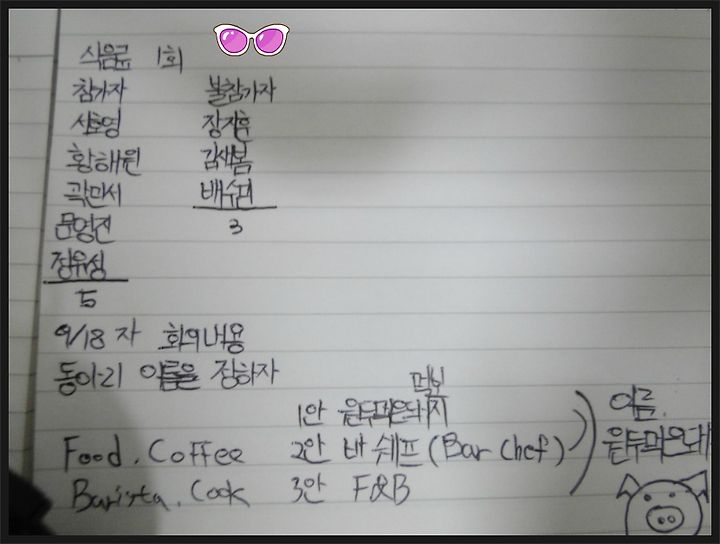 식음료 1회
참가자 불참가자
서호영 장지훈
황해원 김새봄
곽민서 배수려
문영진 3
정유성
5
9/18 자 회의내용
동아리 이름을 정하자
1안 돼지
Food. Coffee 2안 바 쉐프 (Bar Chef) 이름.
Barista. Cook 3안 F&B